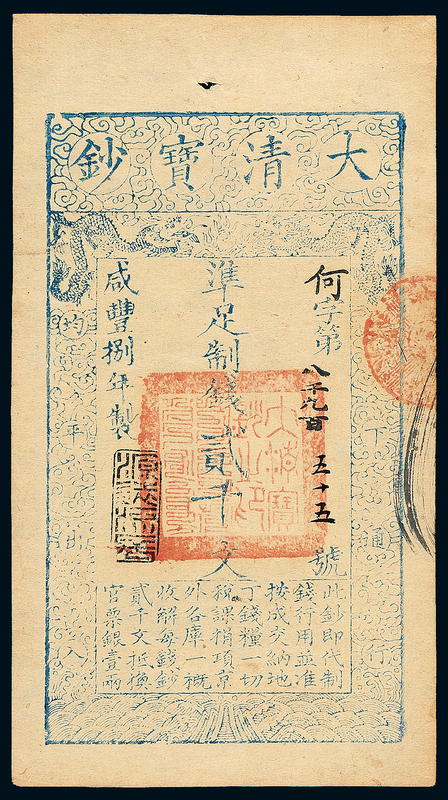 大清寶鈔
下通行
何字第八千九百五十五號
準足制錢貳千文
咸豐捌年製
均平出入
此鈔即代制
錢行用並准
按成交納地
丁錢糧一切
稅課捐項京
外各庫一概
收解每錢鈔
貳千文抵換
官票銀壹兩